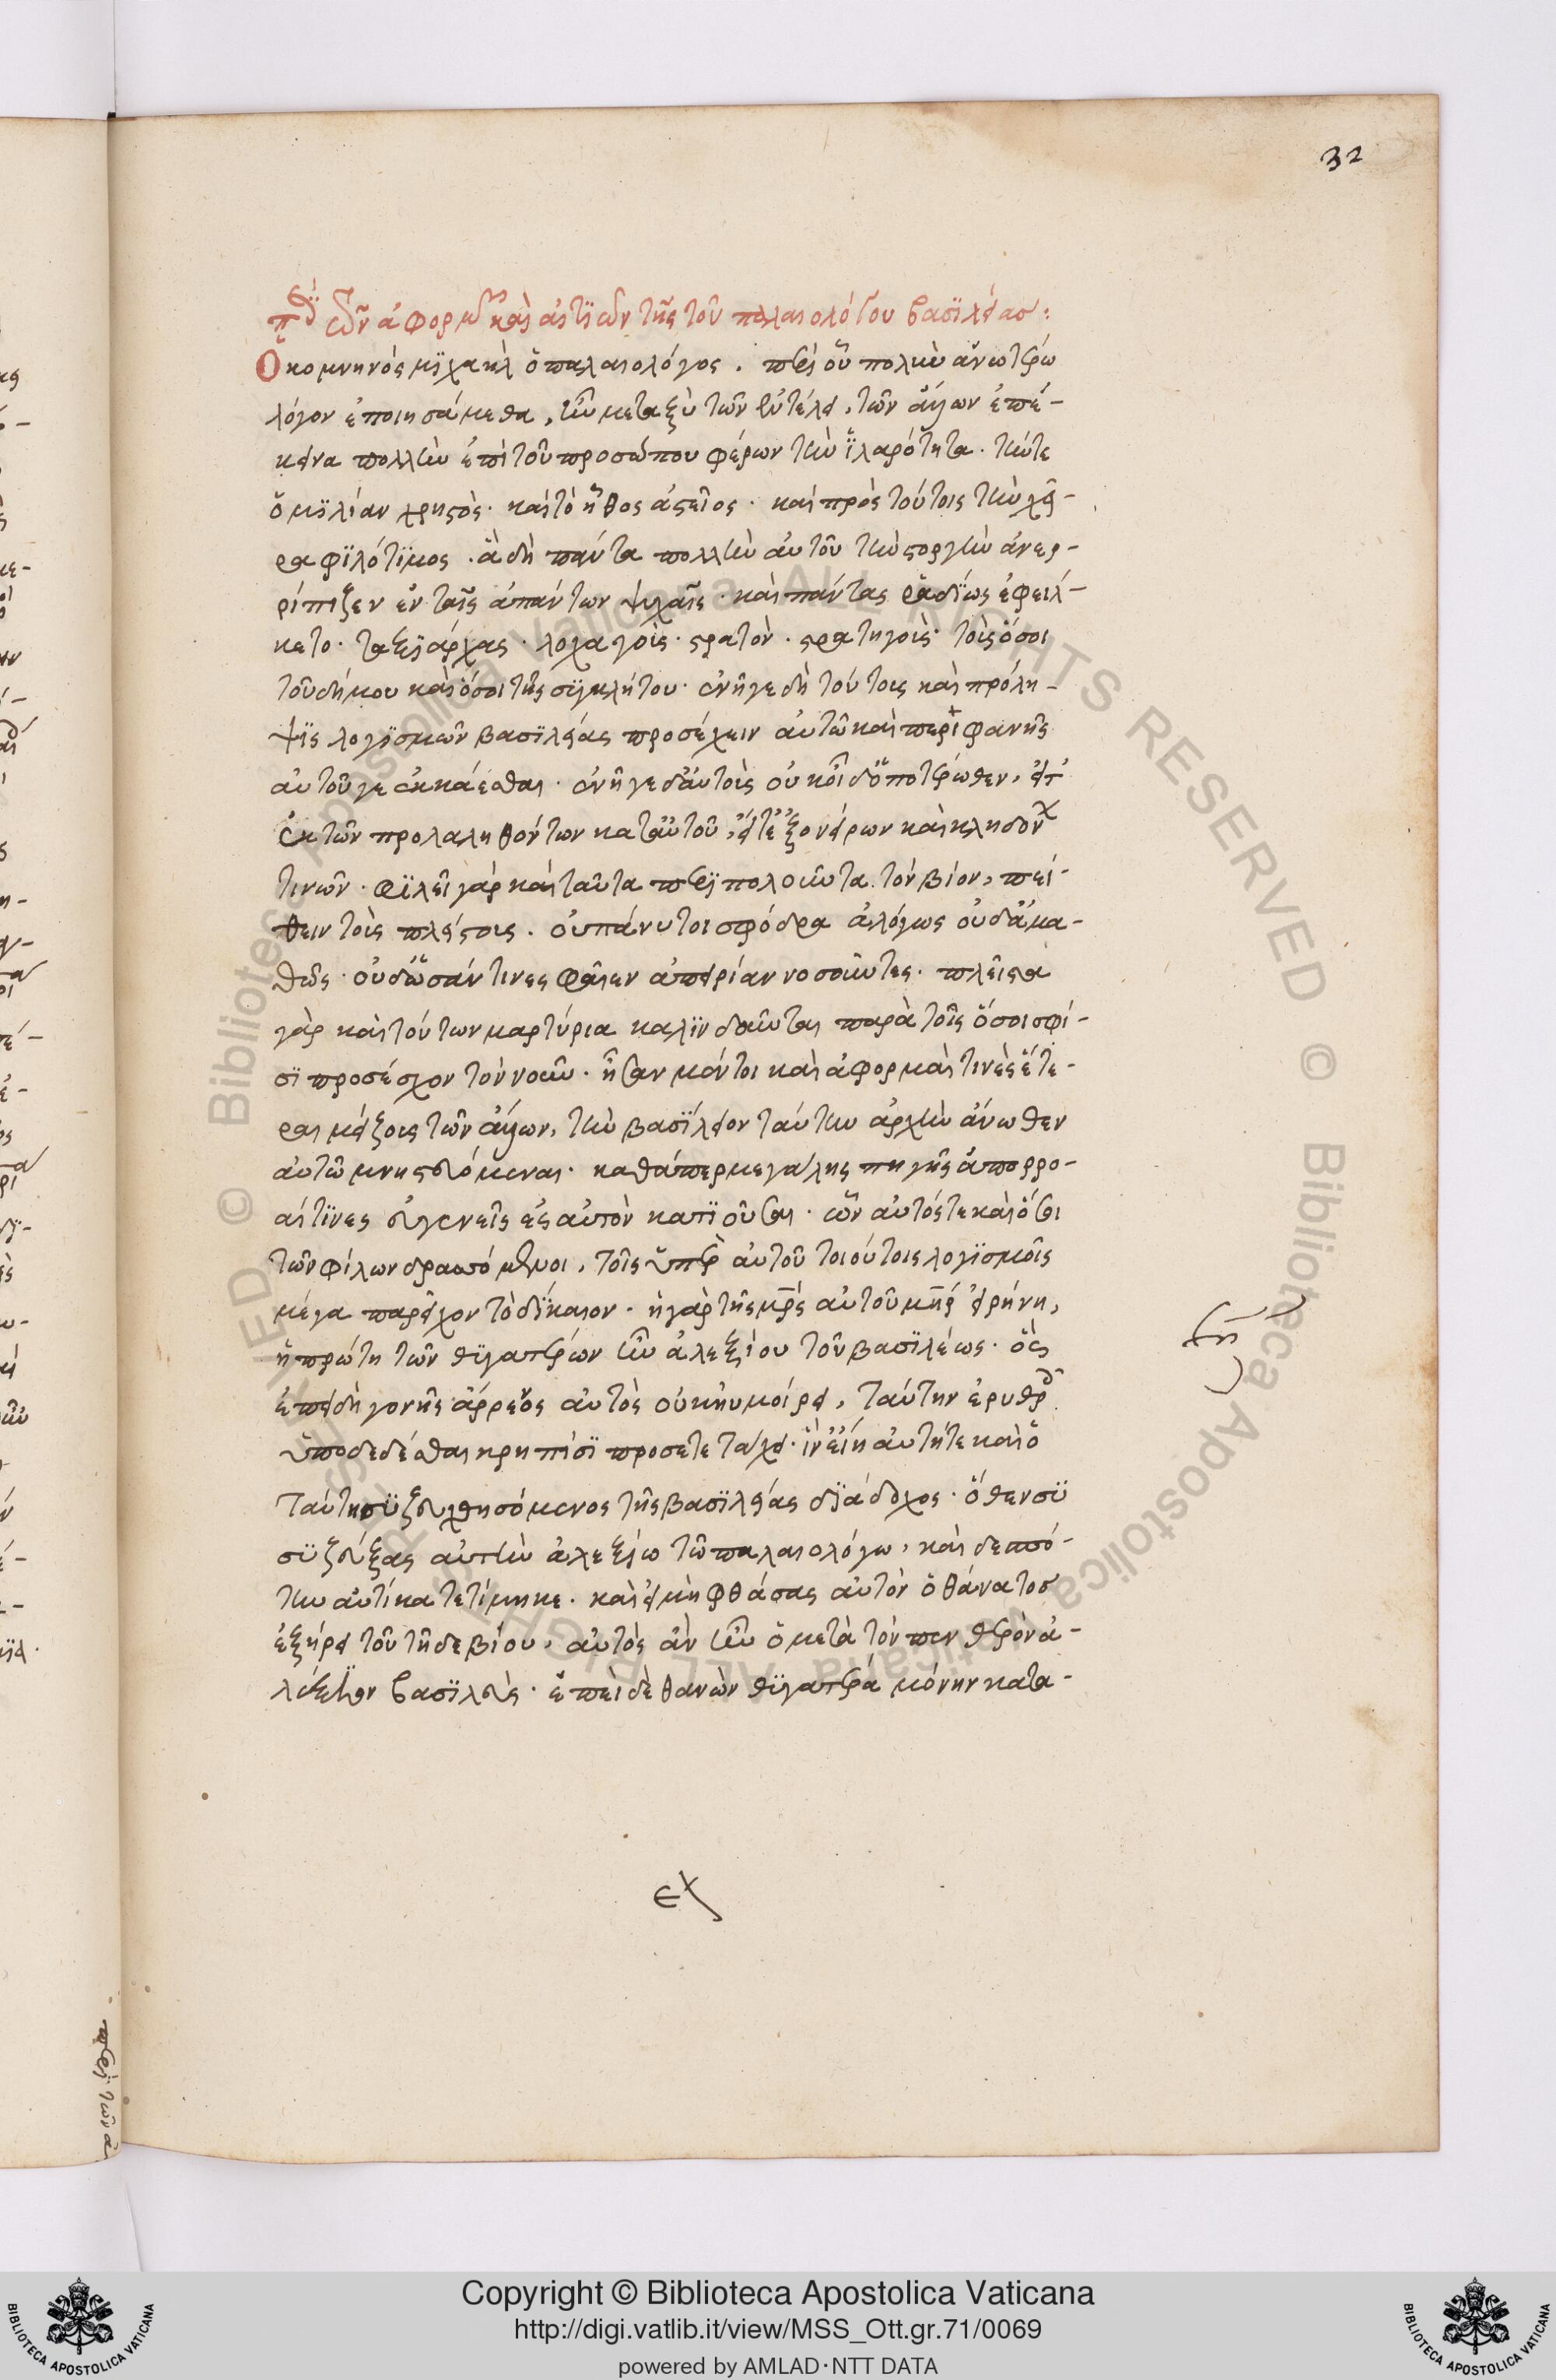 32
περὶ τῶν ἀφορμῶν καὶ αἰτϊῶν τῆς τοῦ παλαιολόγου βασϊλείασ:
Ὁ κομνηνὸς μϊχαὴλ ὁ παλαιολόγος. περὶ οὗ πολλὺ ἀνωτέρω
λόγον ἐποιησάμεθα, ἦν μεταξὺ τῶν ἐν τέλει, τῶν ἄλλων ἐπέ-
κεινα πολλὴν ἐπὶ τοῦ προσώπου φέρων τὴν ἱλαρότητα. τήν τε
ὁμϊλίαν χρηστὸς. καὶ τὸ ἦθος ἀστεῖος. καὶ πρὸς τούτοις τὴν χεῖ-
ρα φϊλότϊμος. ἃ δὴ πάντα πολλὴν αὐτοῦ τὴν στοργὴν ἀνερ-
ρίπιζεν ἐν ταῖς ἁπάντων ψυχαῖς. καὶ πάντας ῥαδϊως ἐφείλ-
κετο. ταξϊάρχας. λοχαγοὺς. στρατὸν. στρατηγοὺς. τοὺς ὅσοι
τοῦ δήμου καὶ ὅσοι τῆς συγκλήτου. ἐνῆγε δὴ τούτους καὶ πρόλη-
ψϊς λογϊσμῶν βασϊλείας προσέχειν αὐτῶ καὶ περιφανῆς
αὐτοῦ γε ἐκκάεσθαι. ἐνῆγε δ' αὐτοὺς οὐκ οἶδ' ὁποτέρωθεν, εἴτ'
ἐκ τῶν προλαληθέντων κατ' αὐτοῦ, εἴτ' ἐξ ὀνείρων καὶ κληδόνων
τινῶν. φϊλεῖ γὰρ καὶ ταῦτα περϊπολοῦντα τὸν βίον, πεί-
θειν τοὺς πλείστους. οὐ πάνυ τοι σφόδρα ἀλόγως οὐδ' ἀμα-
θῶς. οὐδ' ὥς ἄν τινες φαῖεν ἀπειρίαν νοσοῦντες. πλεῖστα
γὰρ καὶ τούτων μαρτύρια καλϊνδοῦνται παρὰ τοῖς ὅσοι σφί-
σϊ προσέσχον τὸν νοῦν. ἦσαν μέντοι καὶ ἀφορμαὶ τινὲς ἕτε-
ραι μείζους τῶν ἄλλων, τὴν βασϊλειον ταύτην ἀρχὴν ἄνωθεν
αὐτῶ μνηστευόμεναι. καθάπερ μεγάλης πηγῆς ἀπορρο-
αὶ τϊνες εὐγενεῖς ἐς αὐτὸν κατϊοῦσαι. ὧν αὐτός τε καὶ ὅσοι
τῶν φίλων δραττόμενοι, τοῖς ὑπὲρ αὐτοῦ τοιούτοις λογϊσμοῖς
μέγα παρεῖχον τὸ δίκαιον. ἡ γὰρ τῆς μητρὸς αὐτοῦ μήτηρ εἰρήνη,
ἡ πρώτη τῶν θϋγατέρων ἦν ἀλεξίου τοῦ βασϊλέως. ὃς
ἐπειδὴ γονῆς ἄρρενος αὐτὸς οὐκ ηὐμοίρει, ταύτην ἐρυθροῖς
ὑποδεδέσθαι κρηπῖσϊ προσετετάχει. ἵν' εἴη αὐτή τε καὶ ὁ
ταύτη συζευχθησόμενος τῆς βασϊλείας δϊάδοχος. ὅθεν σὺ
συζεύξας αὐτὴν ἀλεξίω τῶ παλαιολόγω, καὶ δεσπό-
την αὐτίκα τετίμηκε. καὶ εἰ μὴ φθάσας αὐτὸν ὁ θάνατοσ
ἐξήρει τοῦ τῆδε βίου, αὐτὸς ἂν ἦν ὁ μετὰ τὸν πενθερὸν ἀ-
λέξιον βασϊλεὺς. ἐπεὶ δὲ θανὼν θϋγατέρα μόνην κατα-